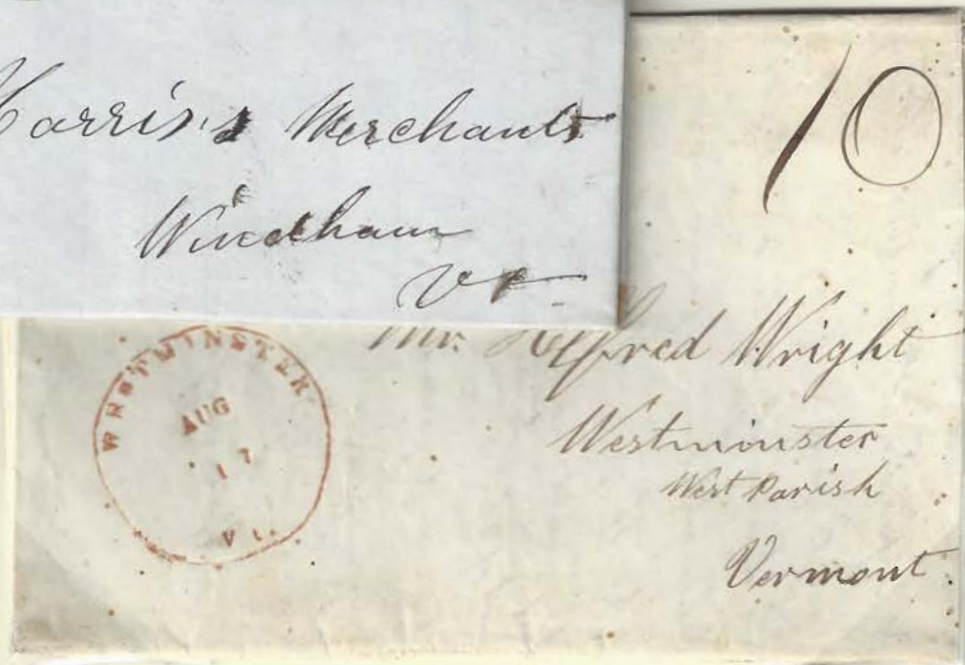 Harris's Merchants
Windham
Vt.
10
Mr. Alfred Wright
Westminster
West Parish
Vermont.
WESTMINSTER
AUG
17
Vt.